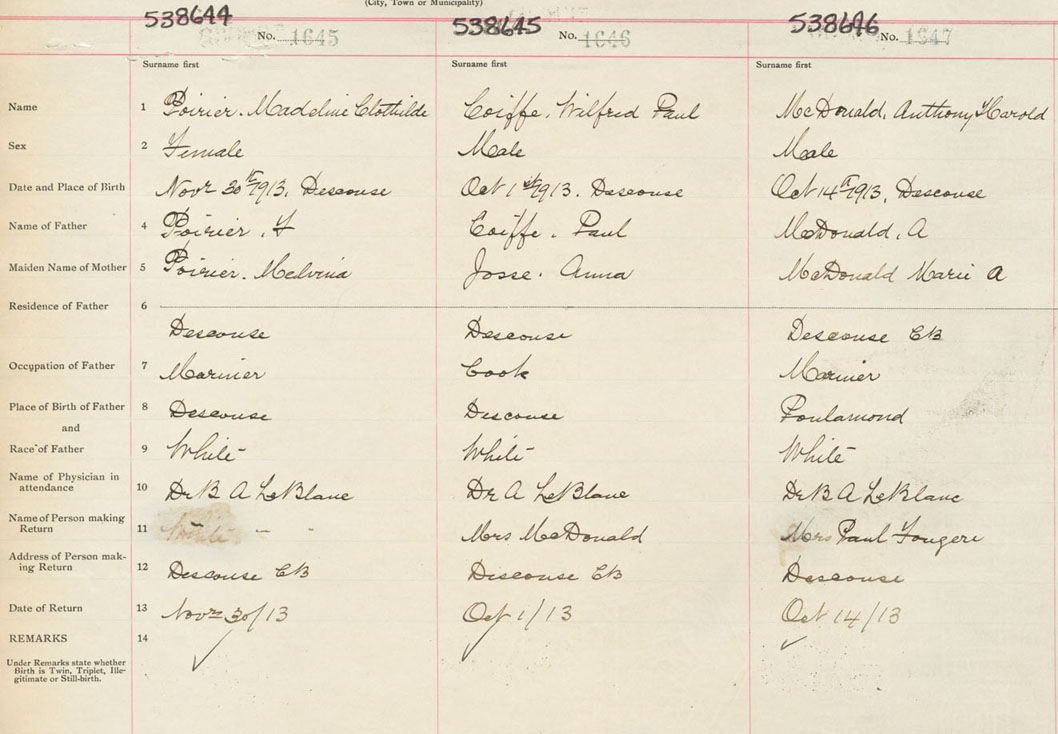 (City, Town or Municipality)
538644 No. 1645 538645 No. 1646 538646 No. 1647
Surname first Surname first Surname first
Name 1 Poirier. Madeline Clothilde Coiffe. Wilfred Paul McDonald, Anthony Harold
Sex 2 Female Male Male
Date and Place of Birth 3 Novr 30th 1913. Descouse Oct 1st 1913. Descouse Oct 14th 1913. Descouse
Name of Father 4 Poirier. F Coiffe. Paul McDonald. A
Maiden Name of Mother 5 Poirier. Melvina Josse. Anna McDonald Marie A
Residence of Father 6
Descouse Descouse Descouse CB
Occupation of Father 7 Mariner Cook Mariner
Place of Birth of Father 8 Descouse Descouse Poulamond
and
Race of Father 9 White White White
Name of Physician in
attendance 10 Dr B A LeBlanc Dr A LeBlanc Dr B A LeBlanc
Name of Person making
Return 11 Mrs McDonald Mrs Paul Fougere
Address of Person mak-
ing Return 12 Descouse CB Descouse CB Descouse
Date of Return 13 Novr 30/13 Oct 1/13 Oct 14/13
REMARKS 14
Under Remarks state whether
Birth is Twin, Triplet, Ille-
gitimate or Still-birth.